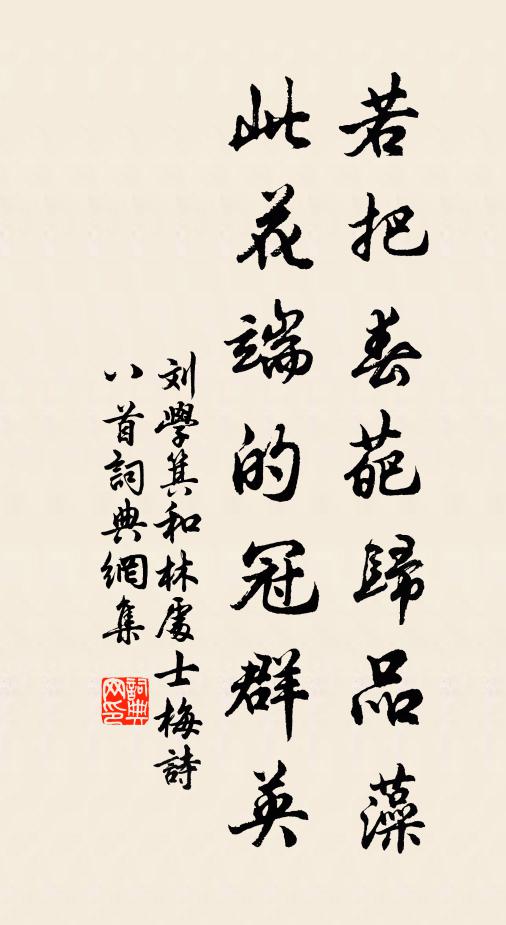 若把春葩歸品藻
此花端的冠群英
刘學箕和林處士梅詩
八首詞典網集
詞典网印